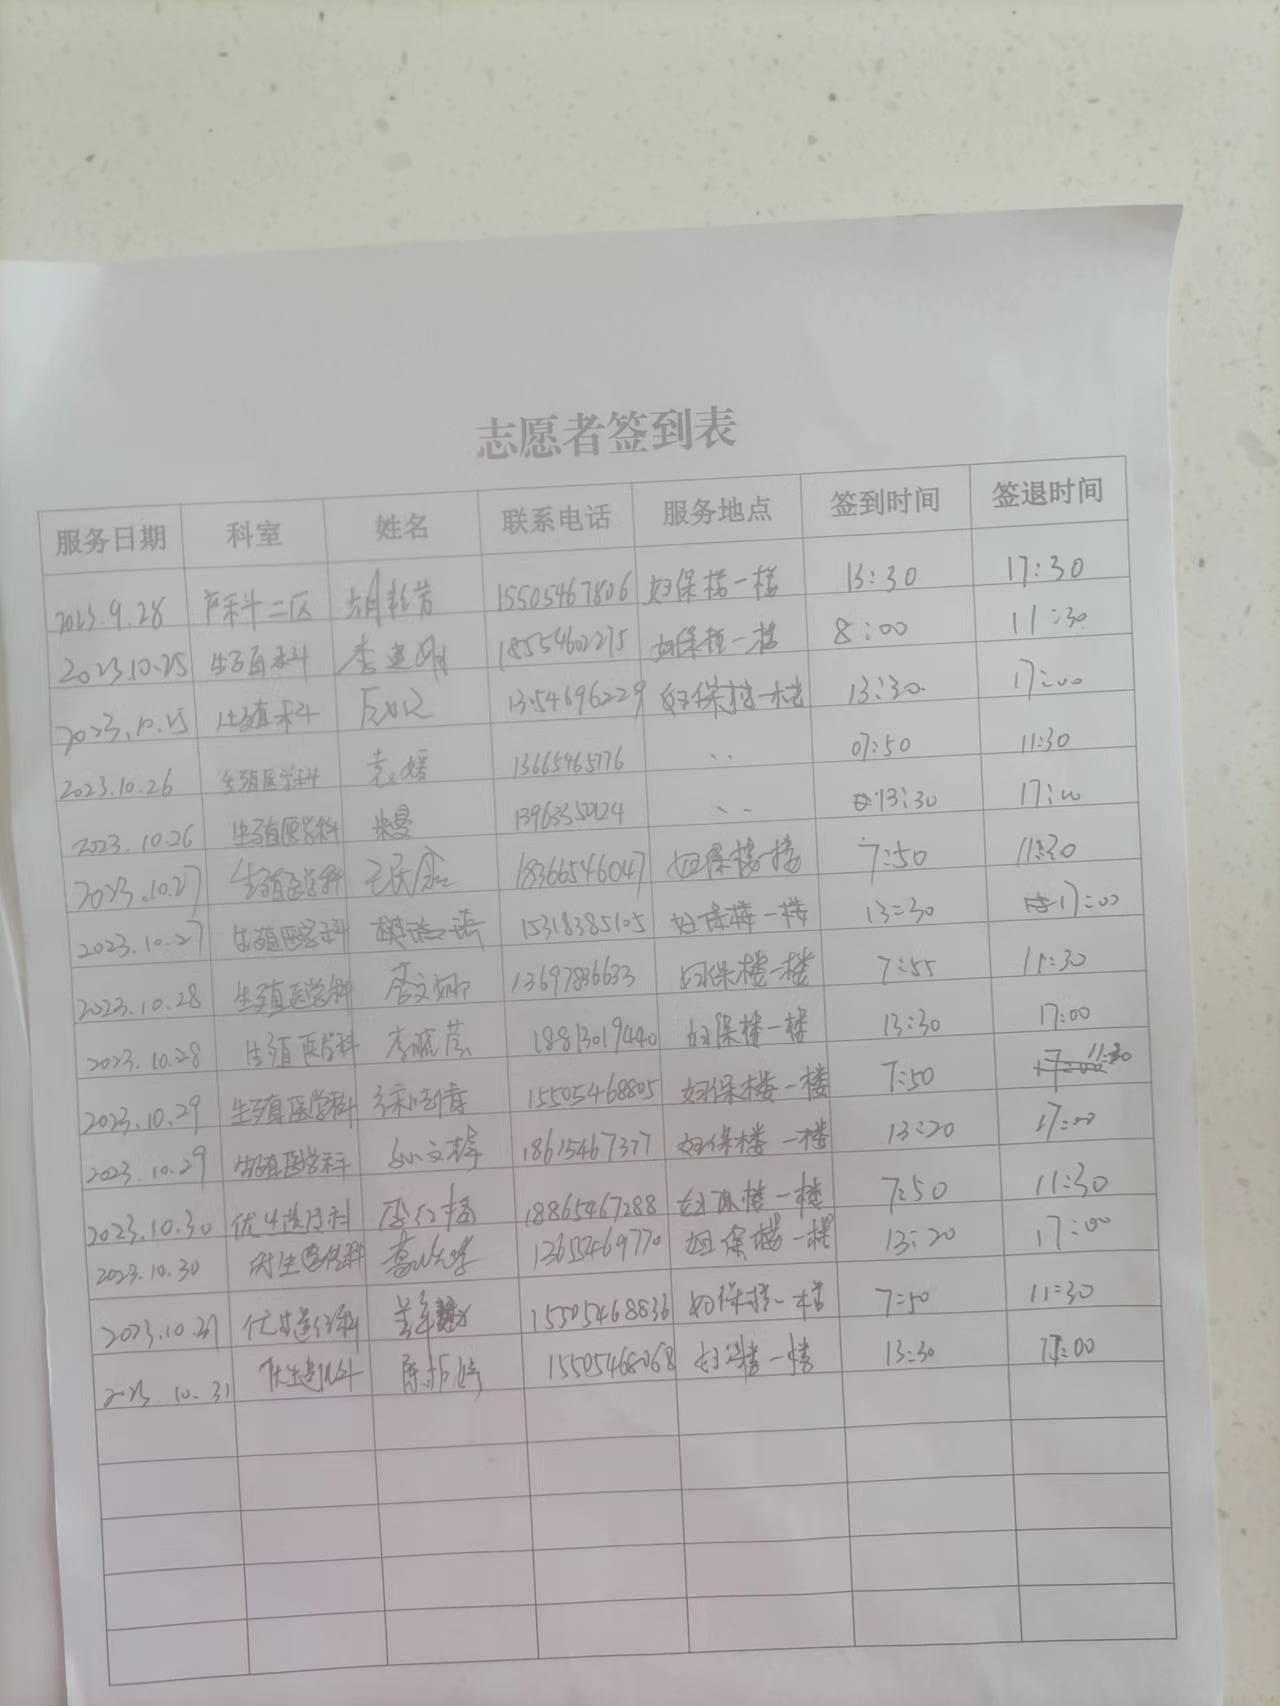 志愿者签到表
服务日期 科室 姓名 联系电话 服务地点 签到时间 签退时间
2023.9.28 产科二区 15505467806 妇保楼一楼 13:30 17:30
2023.10.25 生殖科 李建 18554602275 妇保楼一楼 8:00 11:30
2023.10.25 生殖科 妇保楼一楼 13:30 17:00
2023.10.26 生殖医学科 袁媛 13665465776 .. 07:50 11:30
2023.10.26 生殖医学科 .. 13:30 17:00
2023.10.27 生殖医学科 18366546047 妇保楼一楼 7:50 11:30
2023.10.27 生殖医学科 15318385105 妇保楼一楼 13:30 17:00
2023.10.28 生殖医学科 李文娜 13697836633 妇保楼一楼 7:55 11:30
2023.10.28 生殖医学科 18813019440 妇保楼一楼 13:30 17:00
2023.10.29 生殖医学科 15505468805 妇保楼一楼 7:50 11:30
2023.10.29 生殖医学科 18615467377 妇保楼一楼 13:20 17:00
2023.10.30 优生遗传科 18865467288 妇保楼一楼 7:50 11:30
2023.10.30 13655469770 妇保楼一楼 13:20 17:00
2023.10.31 优生遗传科 15505468836 妇保楼一楼 7:50 11:30
2023.10.31 优生遗传科 15505468068 妇保楼一楼 13:30 17:00